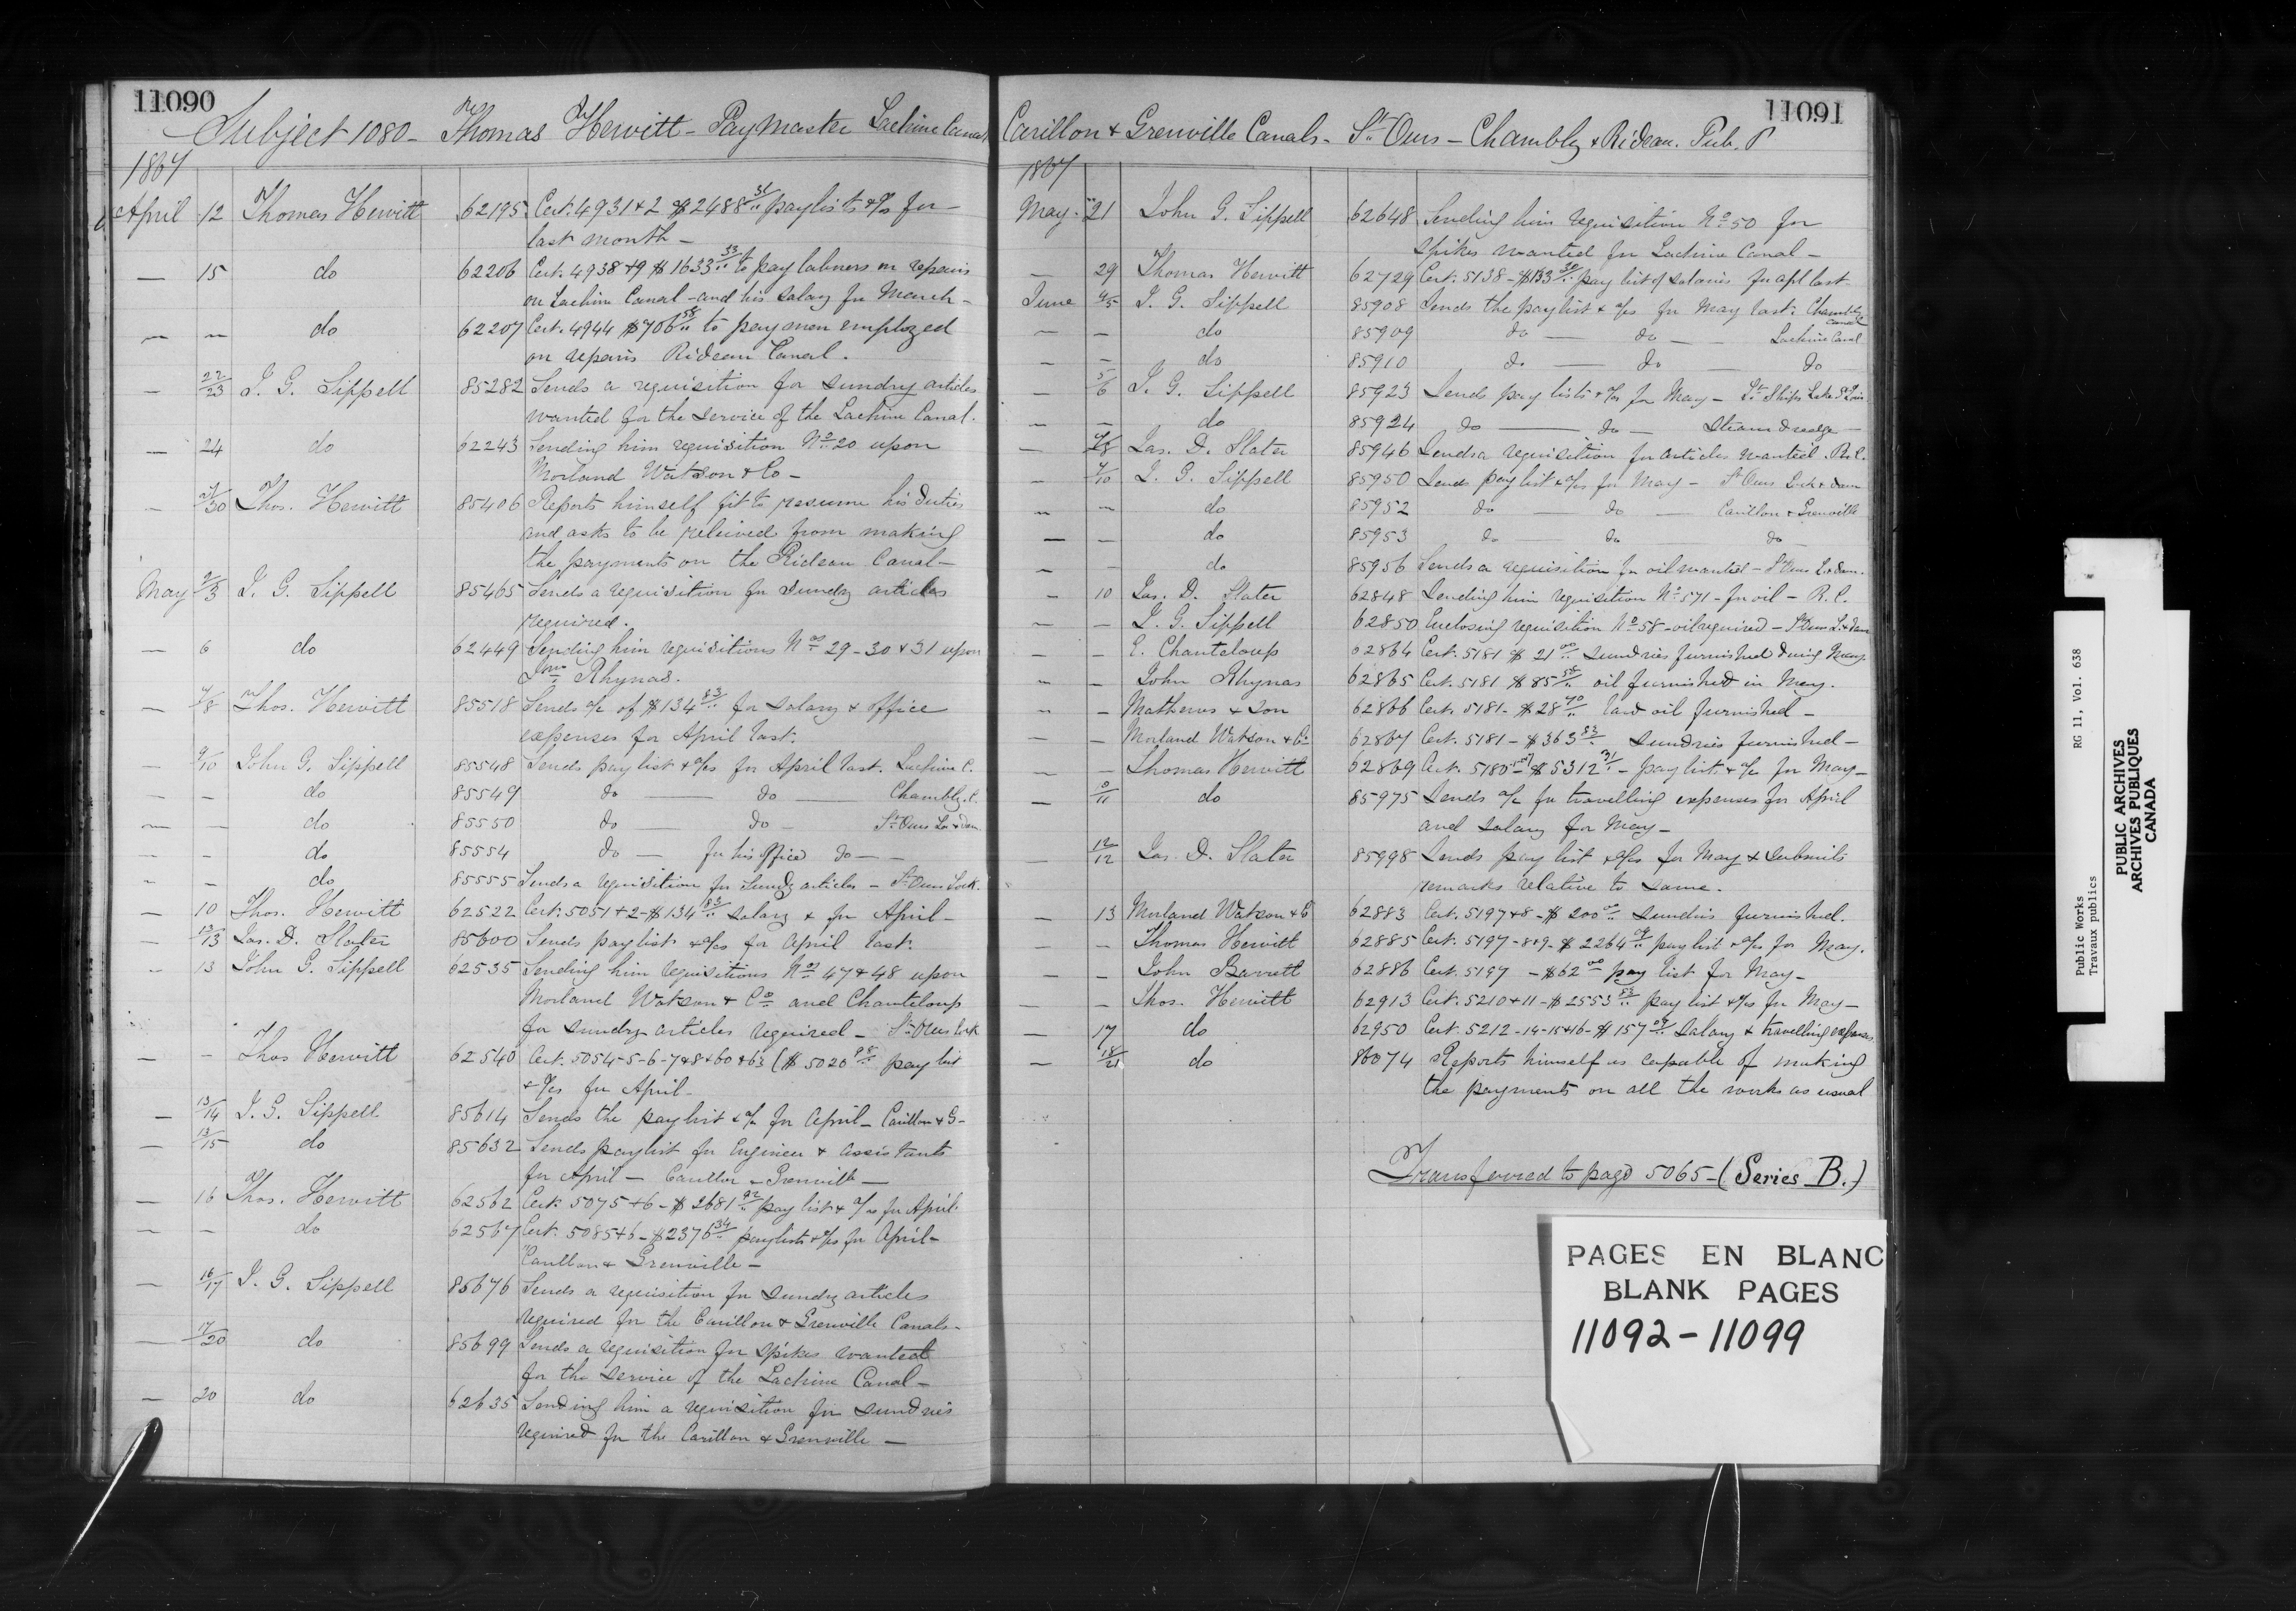 11090
Subject 1080 - Thomas Hewitt - Pay Master Lachine Canal
1867
April 12 Thomas Hewitt 62195 Cert. 4931 + 2 $2488 31/.. paylists & a/cs for
last month -
— 15 do 62206 Cert. 4938 + 9 $1633 33/.. to pay labrers on repairs
on Lachine Canal - and his salary for March -
— — do 62207 Cert. 4944 $706 58/.. to pay men employed
on repairs Rideau Canal.
— 22/23 J. G. Sippell 85282 Sends a requisition for sundry articles
wanted for the service of the Lachine Canal.
— 24 do 62243 Sending him requisition No 20 upon
Morland Watson & Co -
— 27/30 Thos. Hewitt 85406 Reports himself fit to resume his duties
and asks to be releived from making
the payments on the Rideau Canal -
May 2/3 J. G. Sippell 85465 Sends a requisition for sundry articles
required.
— 6 do 62449 Sending him requisitions Nos 29 - 30 & 31 upon
Jno Rhynas.
— 7/8 Thos. Hewitt 85518 Sends a/c of $134 83/.. for salary & office
expenses for April last.
— 9/10 John G. Sippell 85548 Sends pay list & a/cs for April last. Lachine C.
— — do 85549 do — do — Chambly C.
— — do 85550 do — do — St Ours Loc & dam
— — do 85554 do — for his office do — —
— — do 85555 Sends a requisition for sundy articles - St Ours Lock.
— 10 Thos. Hewitt 62522 Cert: 5051 + 2 - $134 83/.. salary & for April -
— 13/13 Jas. D. Slater 85600 Sends pay list & a/cs for April last.
— 13 John G. Sippell 62535 Sending him requisitions Nos 47 & 48 upon
Morland Watson & Co and Chanteloup
for sundry articles required - St Ours lock
— — Thos Hewitt 62540 Cert. 5054 - 5 - 6 - 7 & 8 & 60 & 63 ($5020 98/.. pay list
& a/cs for April -
— 13/14 J. G. Sippell 85614 Sends the pay list & a/c for April - Carillon & G -
— 13/15 do 85632 Sends paylist for Engineer & assistants
for April - Carillon & Grenville -
— 16 Thos. Hewitt 62562 Cert. 5075 + 6 - $2681 92/.. pay list & a/cs for April.
— — do 62567 Cert. 5085 + 6 - $2376 34/.. paylists & a/cs for April -
Carillon & Grenville -
— 16/17 J. G. Sippell 85676 Sends a requisition for sundry articles
required for the Carillon & Grenville Canals -
— 17/20 do 85699 Sends a requisition for spikes wanted
for the service of the Lachine Canal -
— 20 do 62635 Sending him a requisition for sundries
required for the Carillon & Grenville -
11091
Carillon & Grenville Canals - St Ours - Chambly & Rideau. Pub. P
1867
May 21 John G. Sippell 62648 Sending him requisition No 50 for
spikes wanted for Lachine Canal -
— 29 Thomas Hewitt 62729 Cert. 5138 - $133 30/.. pay list of salaries for apl last
June 4/5 J. G. Sippell 85908 Sends the pay list & a/cs for May last. Chambly
canal
— — do 85909 do — do — — Lachine Canal
— — do 85910 do — do — do
— 5/6 J. G. Sippell 85923 Sends pay lists & a/cs for May - Lt Ships Lake St Louis
— — do 85924 do — do — Steam dredge —
— 7/8 Jas. D. Slater 85946 Sends a requisition for articles wanted. R.C.
— 7/10 J. G. Sippell 85950 Sends pay list & a/cs for May - St Ours Lock & dam
— — do 85952 do — do — Carillon & Grenville
— — do 85953 do — do — do —
— — do 85956 Sends a requisition for oil wanted - St Ours L. & dam.
— 10 Jas. D. Slater 62848 Sending him requisition No 571 - for oil - R.C.
— — J. G. Sippell 62850 Enclosing requisition No 58 - oil required - St Ours L. & dam
— — E. Chanteloup 62864 Cert. 5181 $21 00/.. sundries furnished during May.
— — John Rhynas 62865 Cert. 5181 $85 58/.. oil furnished in May.
— — Mathews & Son 62866 Cert. 5181 - $28 70/.. lard oil furnished -
— — Morland Watson & Co 62867 Cert. 5181 - $363 83/.. sundries furnished -
— — Thomas Hewitt 62869 Cert. 5180 $5312 31/.. - pay list & a/c for May -
— 10/11 do 85975 Sends a/c for travelling expenses for April
and salary for May -
— 12/12 Jas. D. Slater 85998 Sends pay list & a/cs for May & submits
remarks relative to same.
— 13 Morland Watson & Co 62883 Cert. 5197 & 8 - $200 00/.. sundries furnished.
— — Thomas Hewitt 62885 Cert. 5197 - 8 & 9 - $2264 pay list & a/cs for May.
— — John Barrett 62886 Cert. 5197 - $62 00 pay list for May -
— — Thos. Hewitt 62913 Cert. 5210 & 11 - $2553 53/.. pay list & a/cs for May -
— 17 do 62950 Cert. 5212 - 14 - 15 & 16 - $157 salary & travelling expenses.
— 18/21 do 86074 Reports himself as capable of making
the payments on all the works as usual
Transferred to page 5065 - (Series B.)
PAGES EN BLANC
BLANK PAGES
11092 - 11099
Public Works RG 11, Vol. 638
Travaux publics
PUBLIC ARCHIVES
ARCHIVES PUBLIQUES
CANADA